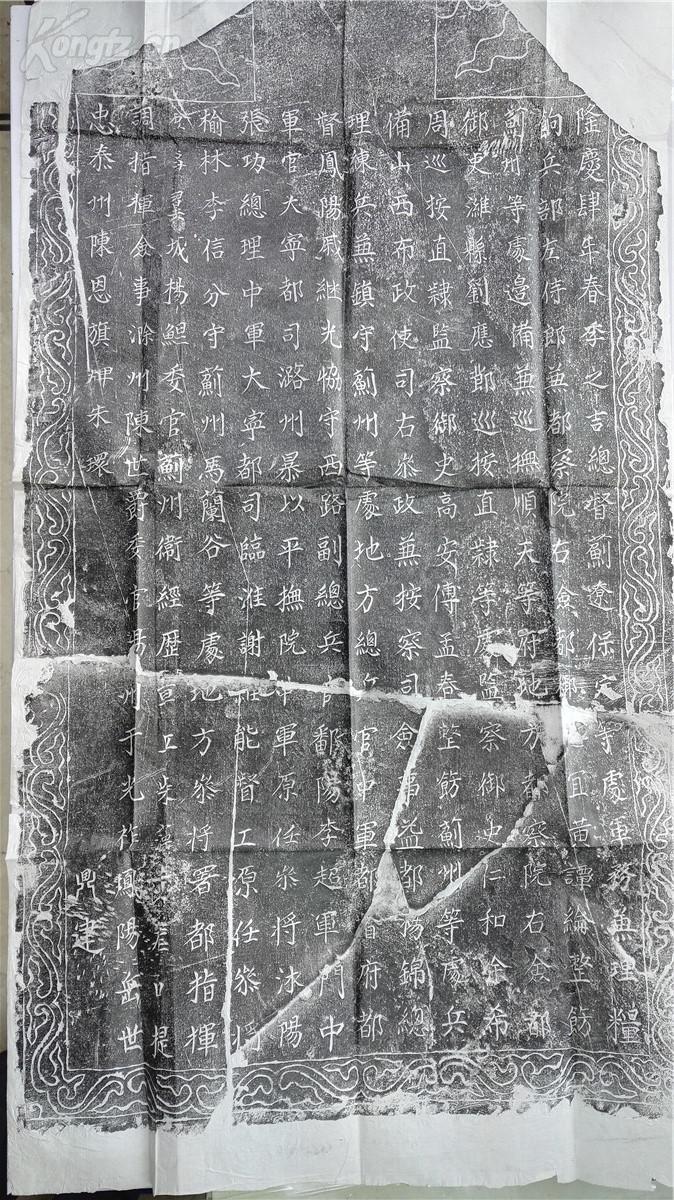 Kongfz.cn
隆慶肆年春季之吉總督薊遼保定等處軍務兼理糧
餉兵部左侍郎兼都察院右僉都御史宜黃譚綸整飭
薊州等處邊備兼巡撫順天等府地方都察院右僉都
御史濰縣劉應節巡按直隸等處監察御史仁和余希
周巡按直隸監察御史高安傅孟春整飭薊州等處兵
備山西布政使司右叅政兼按察司僉事益都楊錦總
理練兵兼鎮守薊州等處地方總兵官中軍都督府都
督鳳陽戚継光恊守西路副總兵官鄱陽李超軍門中
軍官大寧都司潞州暴以平撫院中軍原任叅將沭陽
張功總理中軍大寧都司臨淮謝惟能督工原任叅將
榆林李信分守薊州馬蘭谷等處地方叅將署都指揮
城楊鯉委官薊州衛經歷宣工提
調指揮僉事滁州陳世爵委官州于光祚鳳陽岳世
忠泰州陳恩旗牌朱環
鼎建